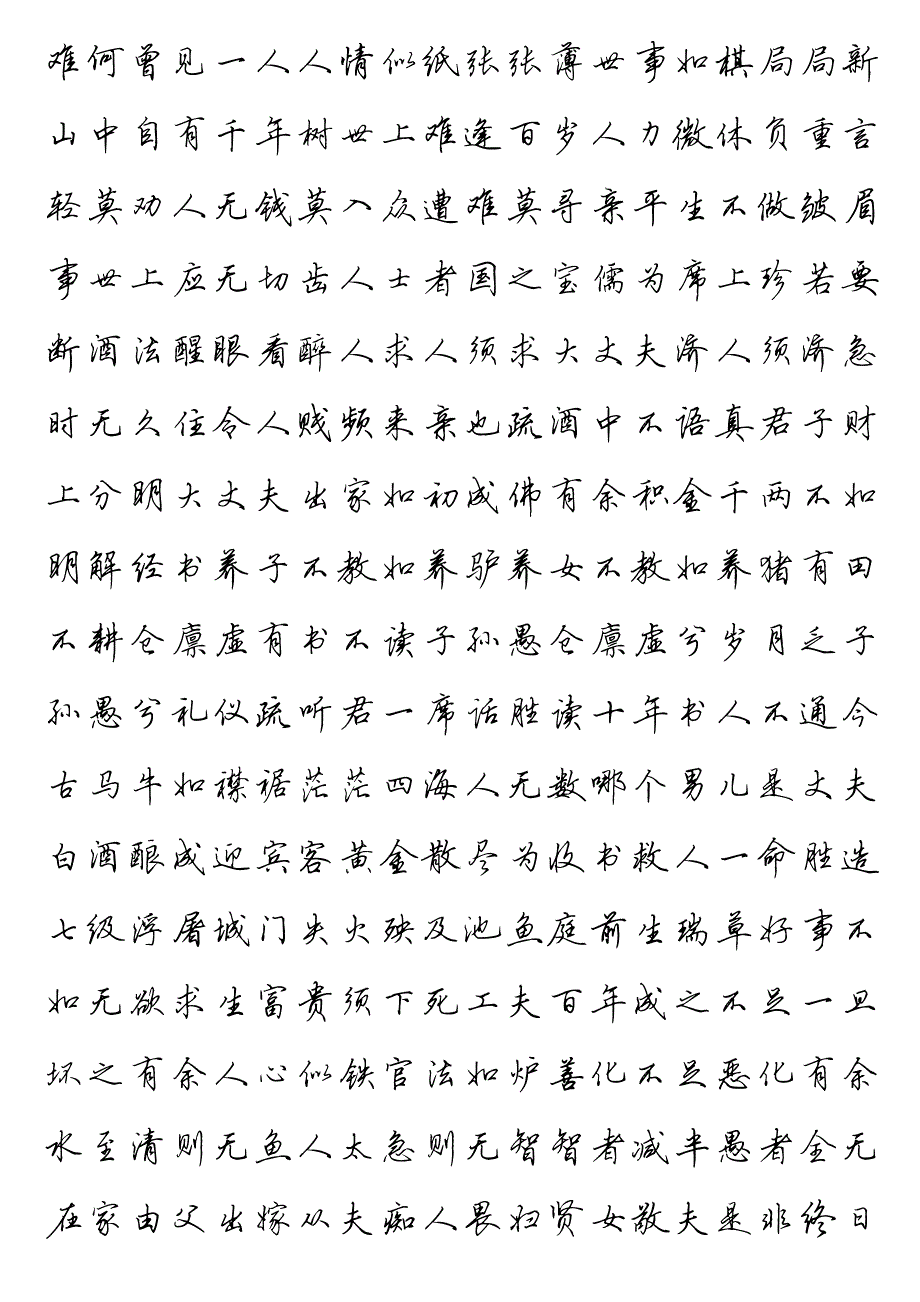 难何曾见一人人情似纸张张薄世事如棋局局新
山中自有千年树世上难逢百岁人力微休负重言
轻莫劝人无钱莫入众遭难莫寻亲平生不做皱眉
事世上应无切齿人士者国之宝儒为席上珍若要
断酒法醒眼看醉人求人须求大丈夫济人须济急
时无久住令人贱频来亲也疏酒中不语真君子财
上分明大丈夫出家如初成佛有余积金千两不如
明解经书养子不教如养驴养女不教如养猪有田
不耕仓廪虚有书不读子孙愚仓廪虚兮岁月乏子
孙愚兮礼仪疏听君一席话胜读十年书人不通今
古马牛如襟裾茫茫四海人无数哪个男儿是丈夫
白酒酿成迎宾客黄金散尽为收书救人一命胜造
七级浮屠城门失火殃及池鱼庭前生瑞草好事不
如无欲求生富贵须下死工夫百年成之不足一旦
坏之有余人心似铁官法如炉善化不足恶化有余
水至清则无鱼人太急则无智智者减半愚者全无
在家由父出嫁从夫痴人畏妇贤女敬夫是非终日